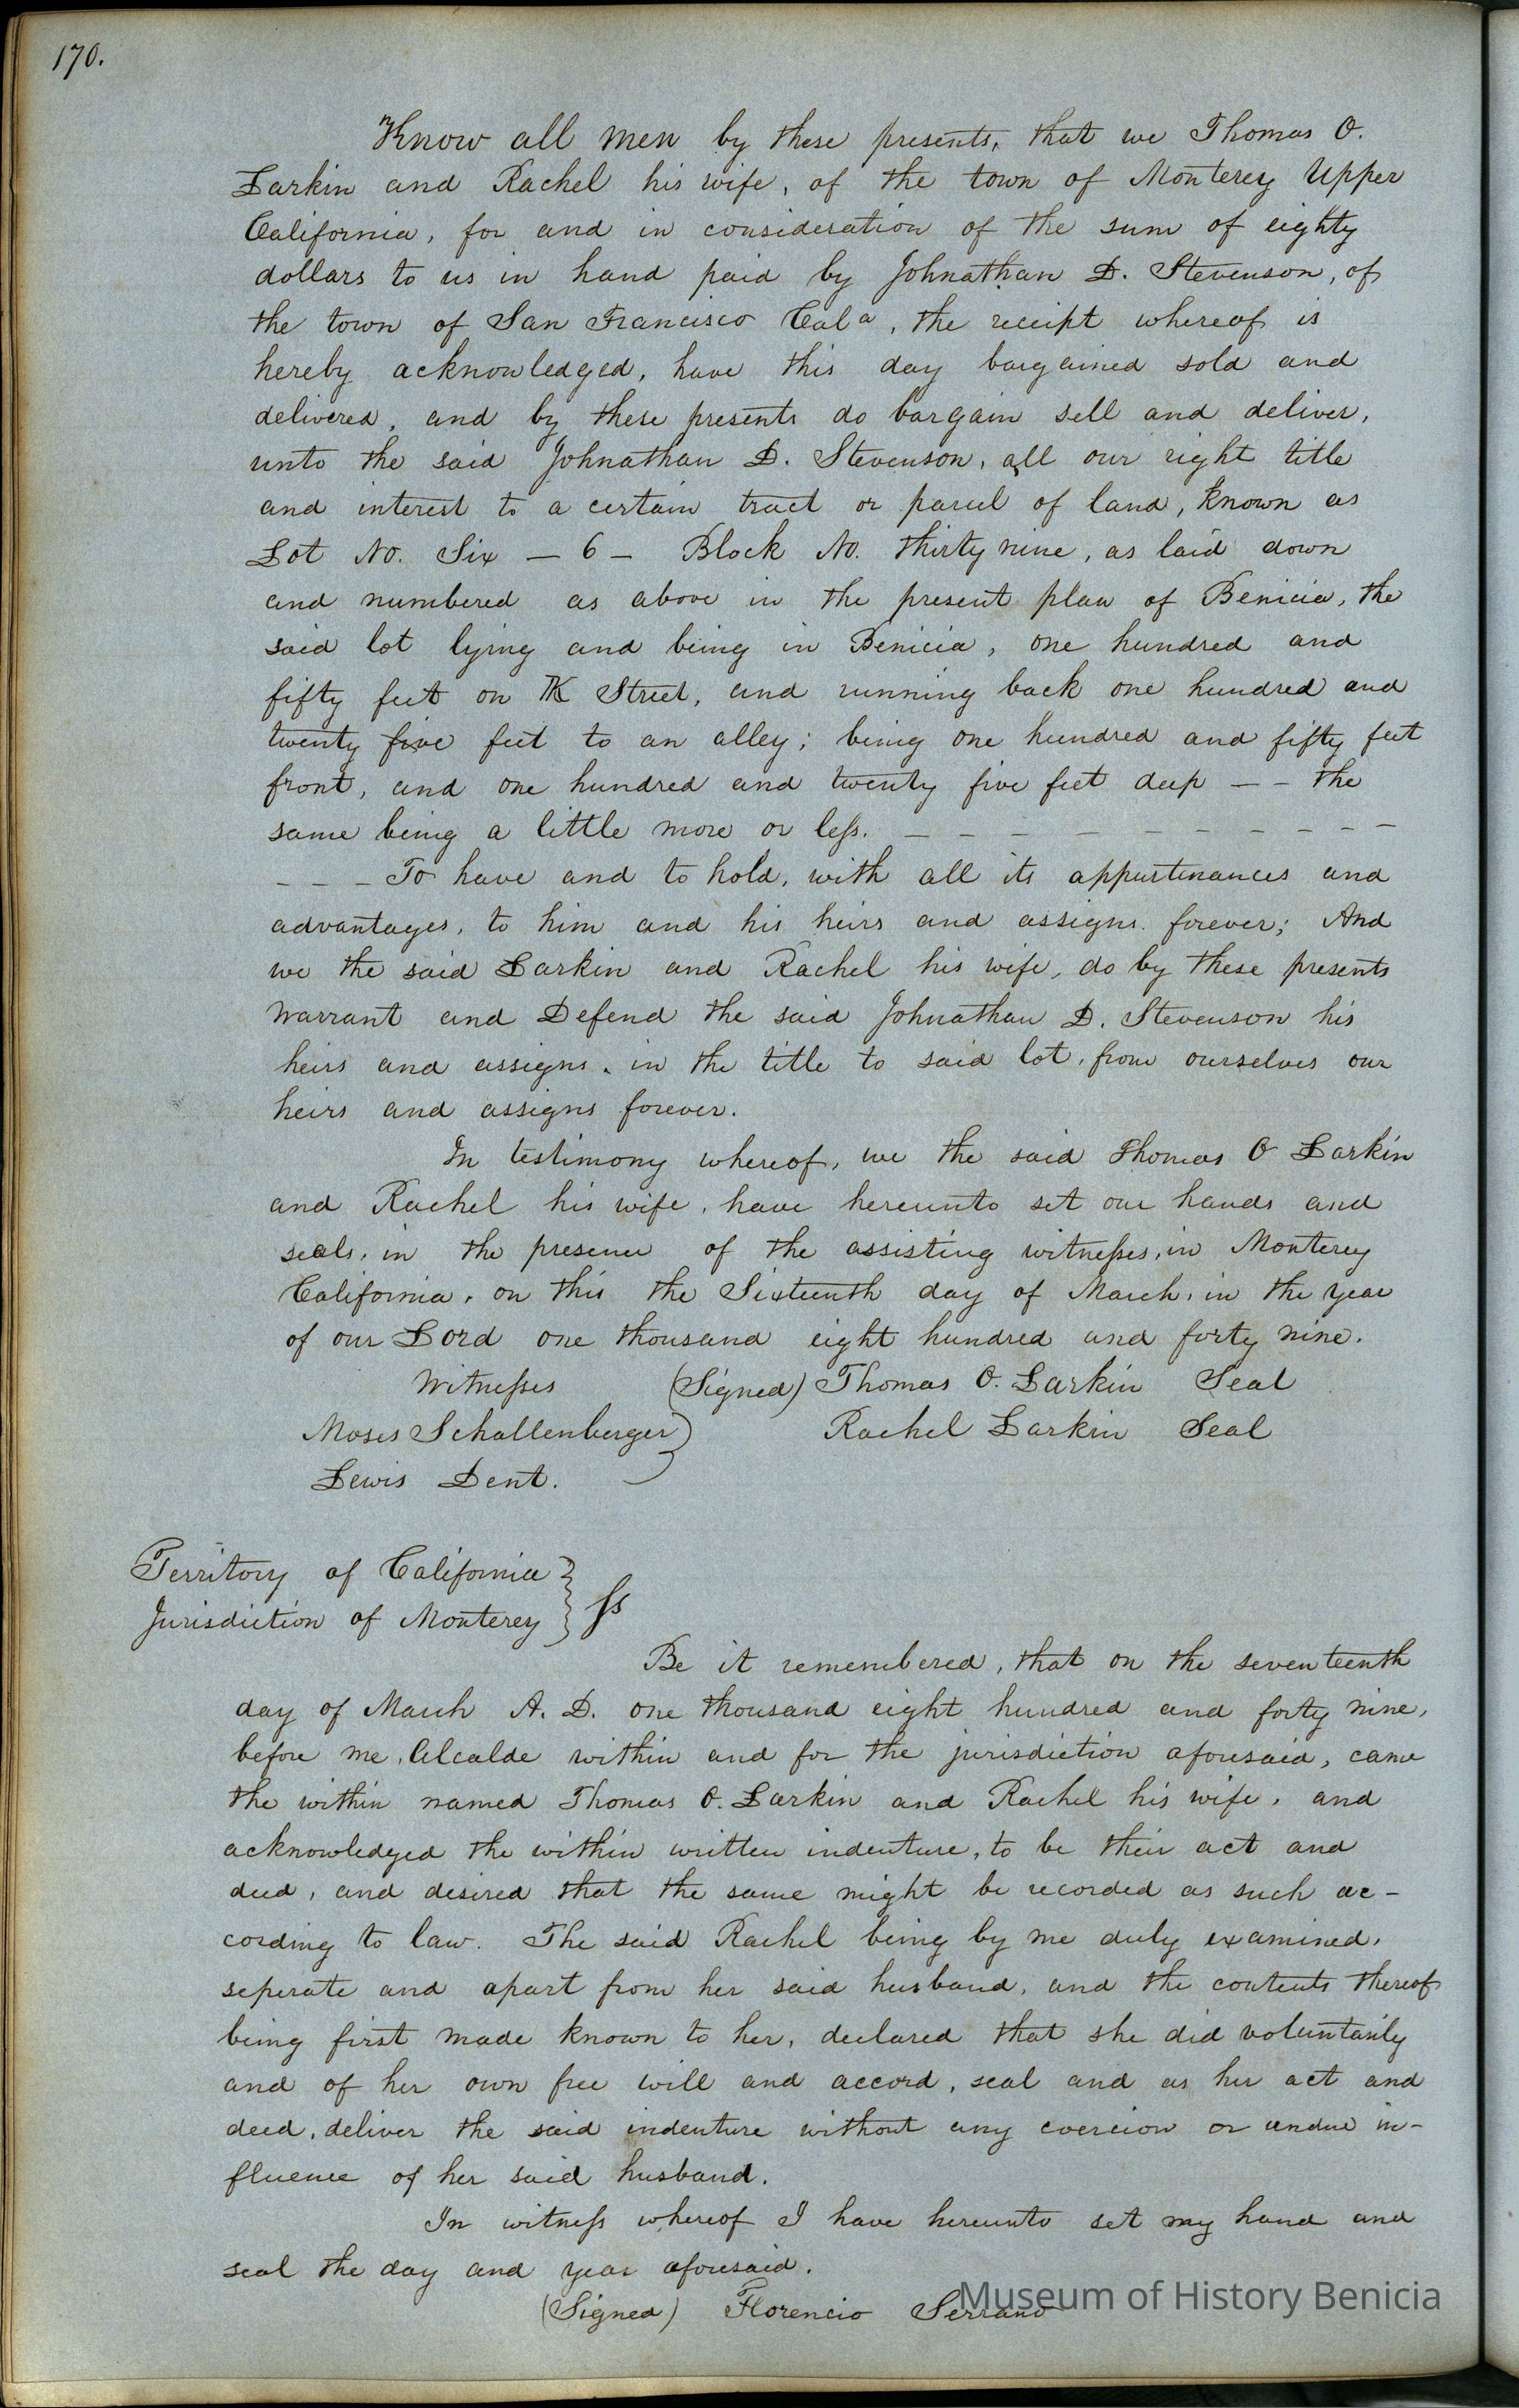 170.
Know all men by these presents, that we Thomas O.
Larkin and Rachel his wife, of the town of Monterey Upper
California, for and in consideration of the sum of eighty
dollars to us in hand paid by Johnathan D. Stevenson, of
the town of San Francisco Cala, the receipt whereof is
hereby acknowledged, have this day bargained sold and
delivered, and by these presents do bargain sell and deliver,
unto the said Johnathan D. Stevenson, all our right title
and interest to a certain tract or parcel of land, known as
Lot No. Six — 6 — Block No. thirty nine, as laid down
and numbered as above in the present plan of Benicia, the
said lot lying and being in Benicia, one hundred and
fifty feet on K Street, and running back one hundred and
twenty five feet to an alley; being one hundred and fifty feet
front, and one hundred and twenty five feet deep — — the
same being a little more or less. — — — — — — — — — —
— — — To have and to hold, with all its appurtenances and
advantages, to him and his heirs and assigns forever; And
we the said Larkin and Rachel his wife, do by these presents
Warrant and Defend the said Johnathan D. Stevenson his
heirs and assigns, in the title to said lot, from ourselves our
heirs and assigns forever.
In testimony whereof, we the said Thomas O Larkin
and Rachel his wife, have hereunto set our hands and
seals, in the presence of the assisting witnesses, in Monterey
California, on this the Sixteenth day of March, in the year
of our Lord one thousand eight hundred and forty nine.
Witnesses (Signed) Thomas O. Larkin Seal
Moses Schallenberger) Rachel Larkin Seal
Lewis Dent.
Territory of California }
Jurisdiction of Monterey } ss
Be it remembered, that on the seventeenth
day of March A. D. one thousand eight hundred and forty nine,
before me, Alcalde within and for the jurisdiction aforesaid, came
the within named Thomas O. Larkin and Rachel his wife, and
acknowledged the within written indenture, to be their act and
deed, and desired that the same might be recorded as such ac-
cording to law. The said Rachel being by me duly examined,
seperate and apart from her said husband, and the contents thereof
being first made known to her, declared that she did voluntarily
and of her own free will and accord, seal and as her act and
deed, deliver the said indenture without any coercion or undue in-
fluence of her said husband.
In witness whereof I have hereunto set my hand and
seal the day and year aforesaid.
(Signed) Florencio Serrano
Museum of History Benicia